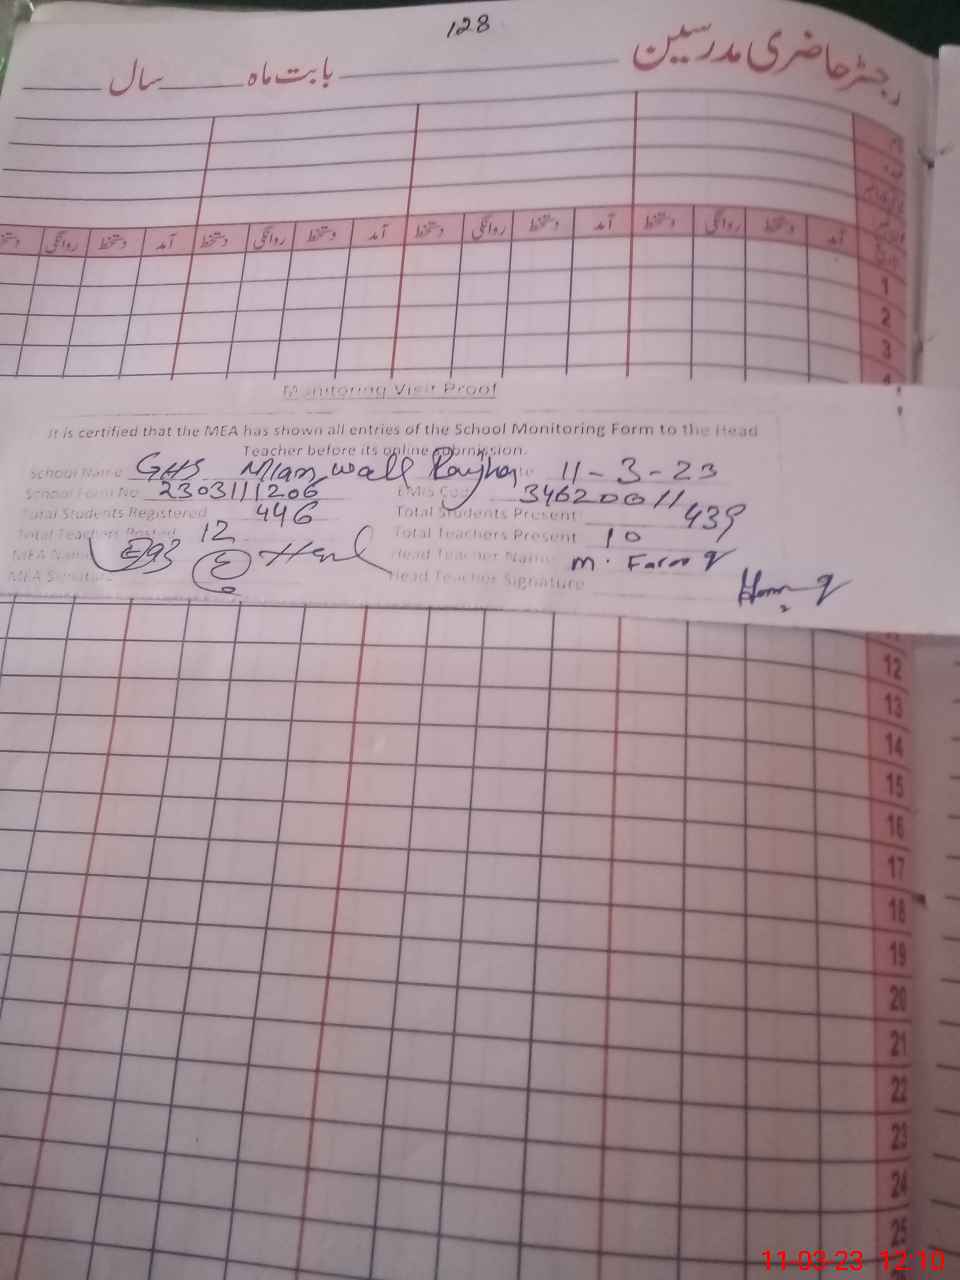 128
رجسٹر حاضری مدرسین بابت ماہ سال
آمد دستخط روانگی دستخط آمد دستخط روانگی دستخط آمد دستخط روانگی دستخط آمد دستخط روانگی
1
2
3
4
Monitoring Visit Proof
It is certified that the MEA has shown all entries of the School Monitoring Form to the Head
Teacher before its online submission.
School Name GHS Mian wall 11-3-23
School Form No 2303111206 EMIS Code 346200011
Total Students Registered 446 Total Students Present 439
Total Teachers Posted 12 Total Teachers Present 10
MEA Name Head Teacher Name M. Farooq
MEA Signature Head Teacher Signature
12
13
14
15
16
17
18
19
20
21
22
23
24
25
11-03-23 12:10